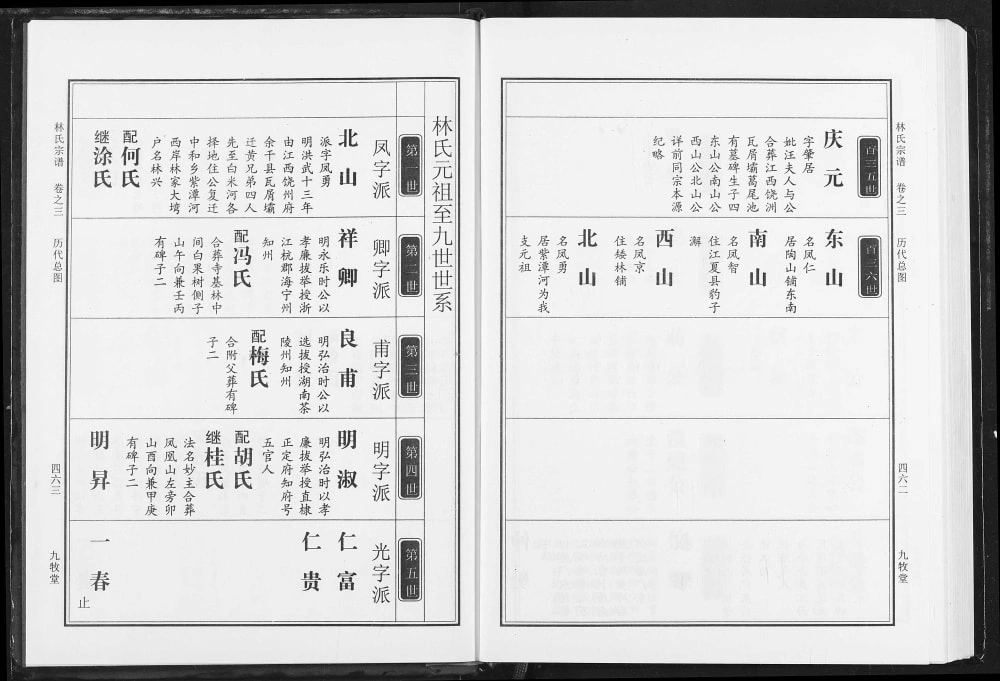 林氏宗谱 卷之三 历代总图 四六二 九牧堂
百三五世
庆元
字肇居
妣汪夫人与公
合葬江西饶洲
瓦屑壩葛尾池
有墓碑生子四
东山公南山公
西山公北山公
详前同宗本源
纪略
百三六世
东山
名凤仁
居陶山铺东南
南山
名凤智
住江夏县豹子
澥
西山
名凤京
住矮林铺
北山
名凤勇
居紫漳河为我
支元祖
林氏元祖至九世世系
第一世
凤字派
北山
派字凤勇
明洪武十三年
由江西饶州府
余干县瓦屑壩
迁黄兄弟四人
先至白米河各
择地住公复迁
中和乡紫漳河
西岸林家大塆
户名林兴
配何氏
继涂氏
第二世
卿字派
祥卿
明永乐时公以
孝廉拔举授浙
江杭郡海宁州
知州
配冯氏
合葬寺基林中
间白果树侧子
山午向兼壬丙
有碑子二
第三世
甫字派
良甫
明弘治时公以
选拔授湖南茶
陵州知州
配梅氏
合附父葬有碑
子二
第四世
明字派
明淑
明弘治时以孝
廉拔举授直棣
正定府知府号
五官人
配胡氏
继桂氏
法名妙主合葬
凤凰山左旁卯
山酉向兼甲庚
有碑子二
明昇
第五世
光字派
仁富
仁贵
一春
止
林氏宗谱 卷之三 历代总图 四六三 九牧堂